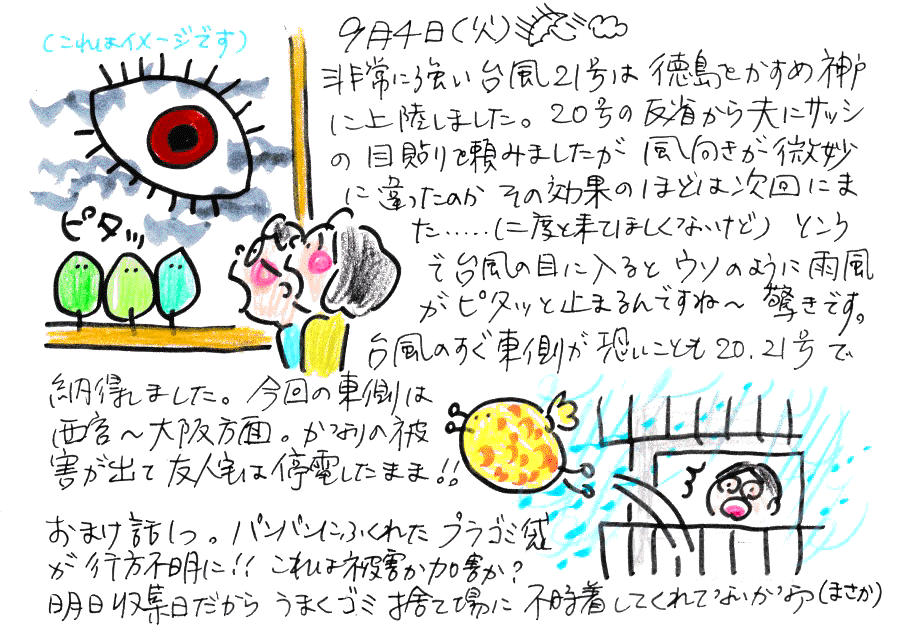 (これはイメージです)
9月4日(火)
非常に強い台風21号は徳島をかすめ神戸
に上陸しました。20号の反省から夫にサッシ
の目貼りを頼みましたが風向きが微妙
に違ったのかその効果のほどは次回にま
た……(二度と来てほしくないけど)ところ
で台風の目に入るとウソのように雨風
がピタッと止まるんですね〜驚きです。
ピタッ
台風のすぐ東側が恐いことも20.21号で
納得しました。今回の東側は
西宮〜大阪方面。かなりの被
害が出て友人宅は停電したまま!!
おまけ話し1つ。パンパンにふくれたプラゴミ袋
が行方不明に!!これは被害か加害か?
明日収集日だからうまくゴミ捨て場に不時着してくれてないかなぁ(まさか)